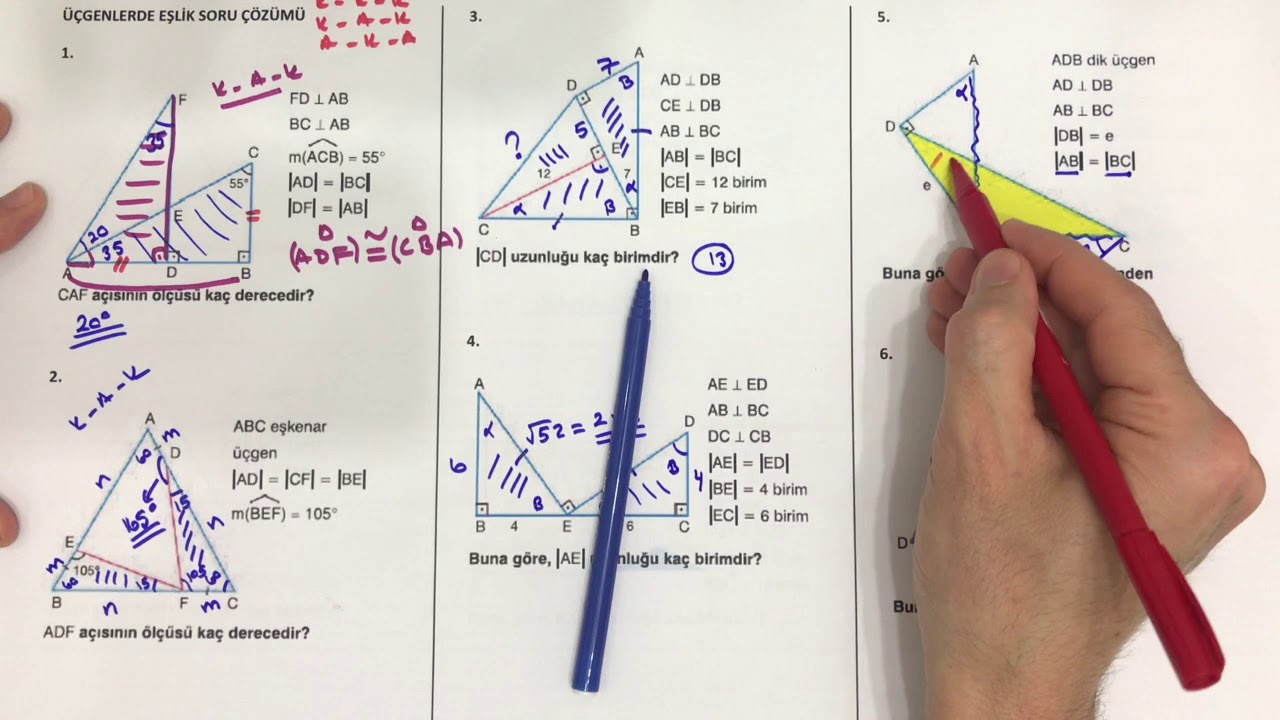 ÜÇGENLERDE EŞLİK SORU ÇÖZÜMÜ
K - A - K
A - K - A
1.
K - A - K
F
35
C
55°
E
20
35
A
D
B
FD ⊥ AB
BC ⊥ AB
m(ACB) = 55°
|AD| = |BC|
|DF| = |AB|
(ADF) ≅ (CBA)
CAF açısının ölçüsü kaç derecedir?
20°
2.
K - A - K
A
m
60
D
n
15
n
165°
E
m
105°
60
15
105
60
B
n
F
m
C
ABC eşkenar
üçgen
|AD| = |CF| = |BE|
m(BEF) = 105°
ADF açısının ölçüsü kaç derecedir?
3.
A
7
B
D
5
?
E
12
7
α
α
B
C
B
AD ⊥ DB
CE ⊥ DB
AB ⊥ BC
|AB| = |BC|
|CE| = 12 birim
|EB| = 7 birim
|CD| uzunluğu kaç birimdir?
13
4.
A
α
√52 = 2
D
B
6
4
B
B
4
E
6
C
AE ⊥ ED
AB ⊥ BC
DC ⊥ CB
|AE| = |ED|
|BE| = 4 birim
|EC| = 6 birim
Buna göre, |AE| kaç birimdir?
5.
A
α
D
e
C
ADB dik üçgen
AD ⊥ DB
AB ⊥ BC
|DB| = e
|AB| = |BC|
Buna
6.
D